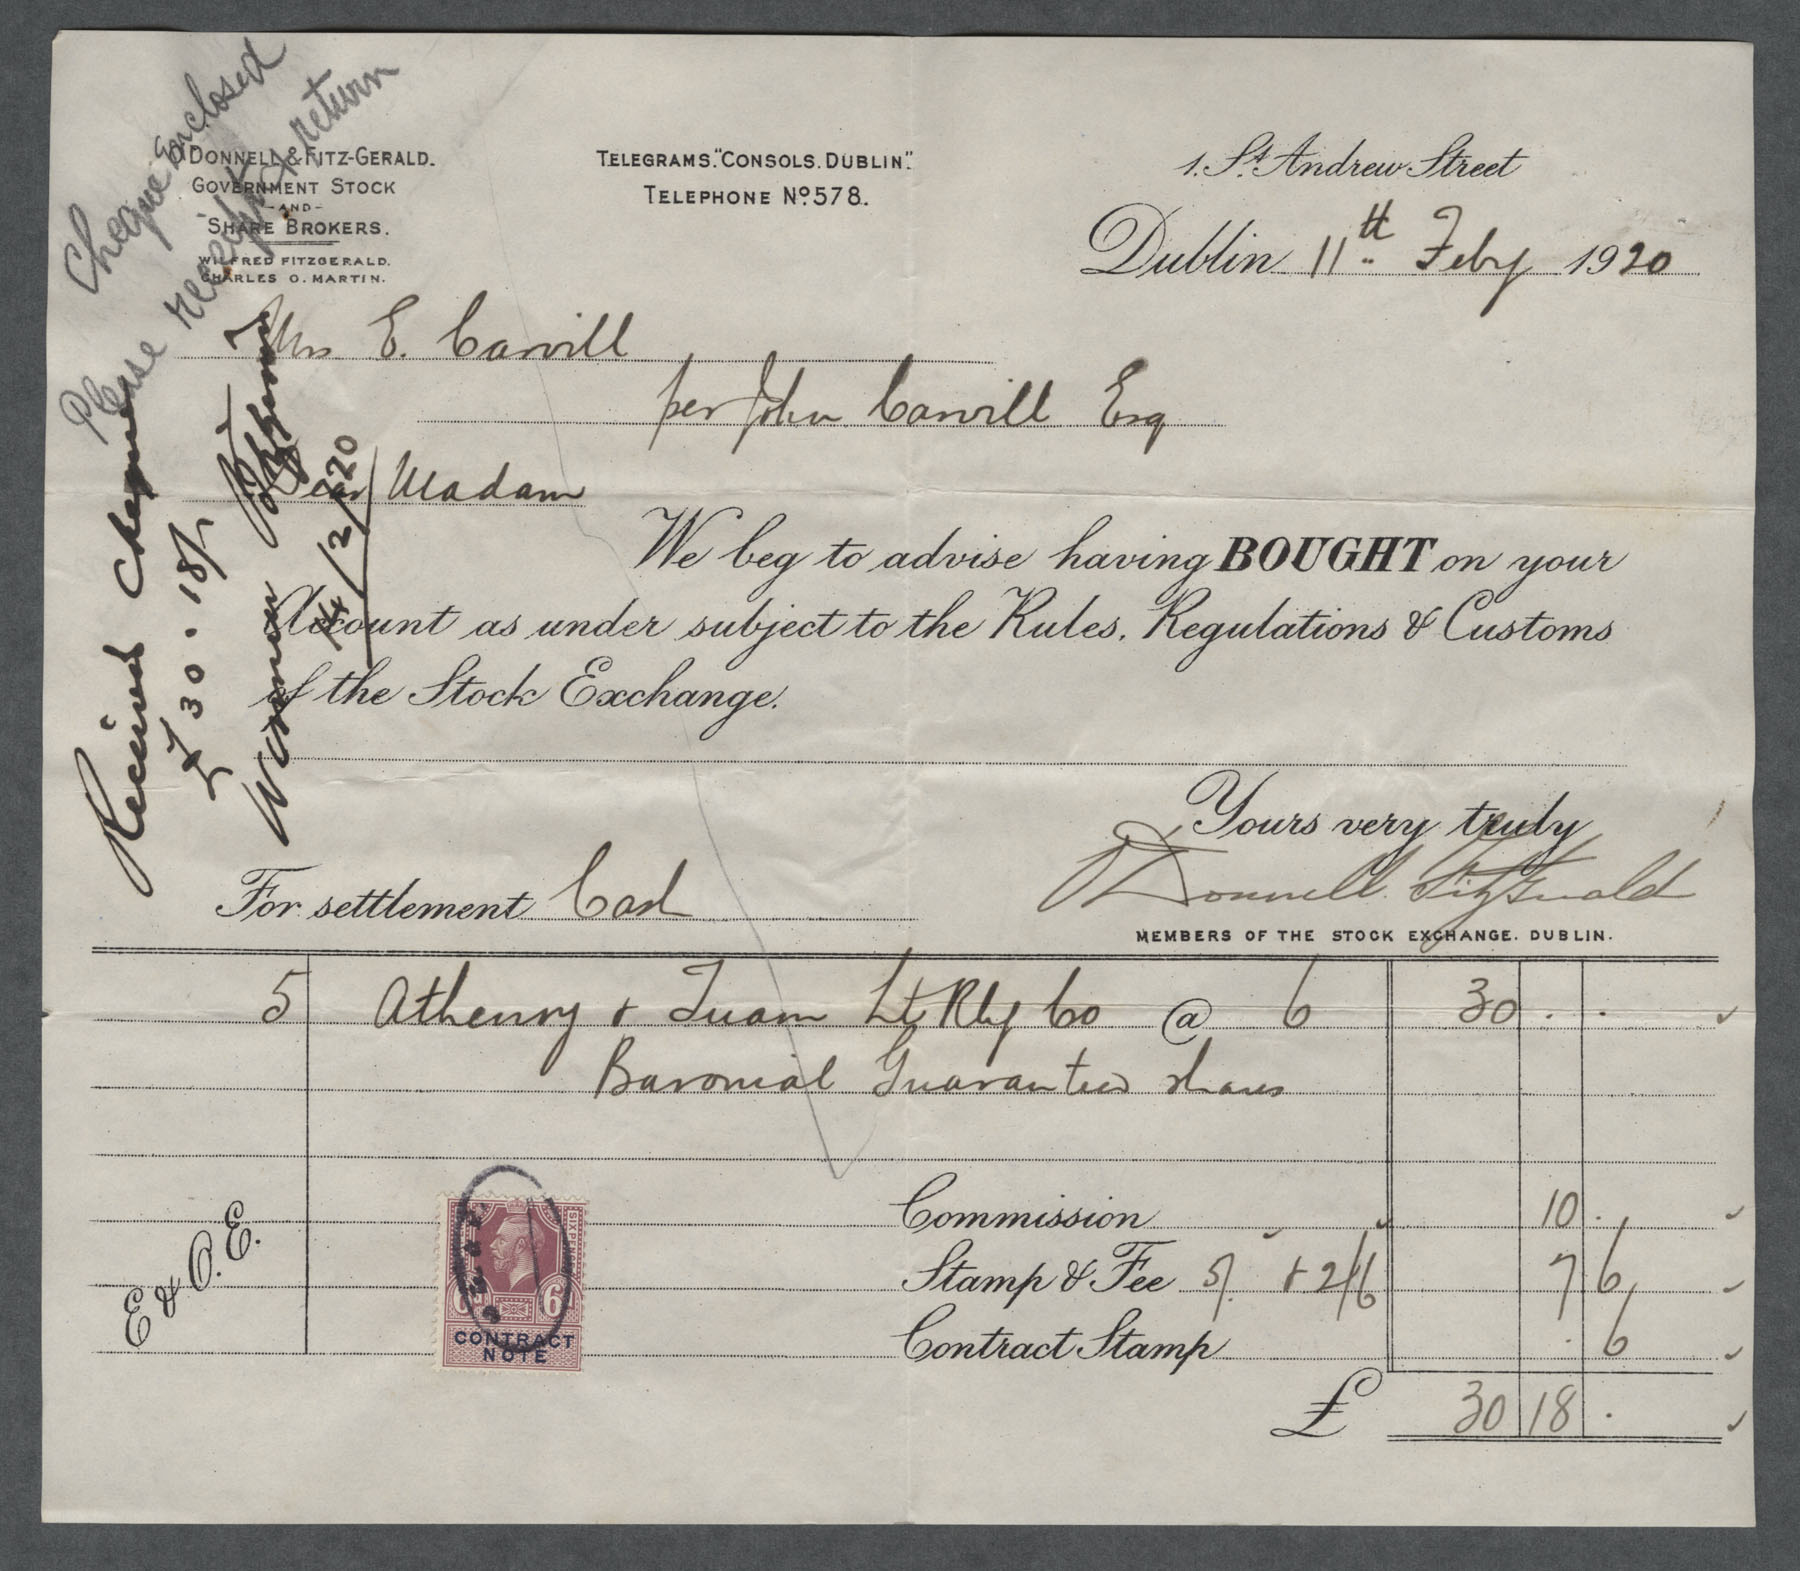 Cheque Enclosed
Please receipt & return
O'DONNELL & FITZ-GERALD.
GOVERNMENT STOCK
-AND-
SHARE BROKERS.
WILFRED FITZGERALD.
CHARLES O. MARTIN.
TELEGRAMS. "CONSOLS. DUBLIN."
TELEPHONE No. 578.
1. St. Andrew Street
Dublin 11th Feby 1920
Mrs E. Carvill
per John Carvill Esq
Dear Madam
We beg to advise having BOUGHT on your
Account as under subject to the Rules, Regulations & Customs
of the Stock Exchange.
Received Cheque
£30.18/-
14/2/20
Yours very truly
O'Donnell Fitzgerald
For settlement Cash
MEMBERS OF THE STOCK EXCHANGE. DUBLIN.
5 Athenry & Tuam Lt Rly Co @ 6 30 . .
Baronial Guaranteed shares
Commission 10 .
Stamp & Fee 5/. + 2/6 7 6
Contract Stamp . 6
£ 30 18 .
E & O. E.
SIX PENCE
6D. 6
CONTRACT
NOTE